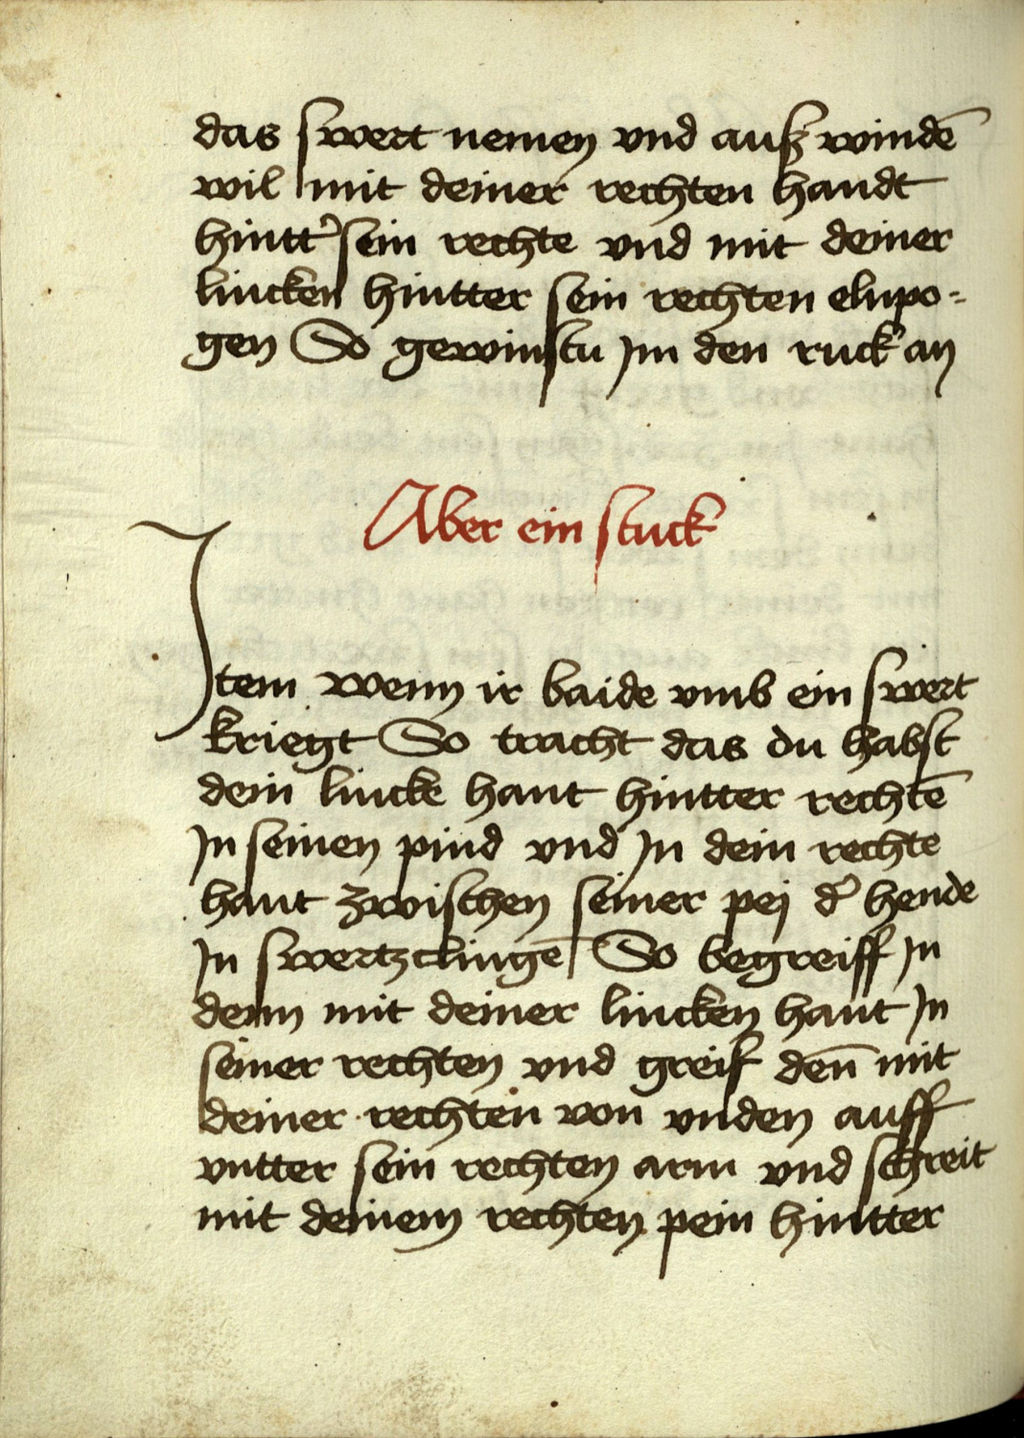 das swert nemen vnd auß windē
wil mit deiner rechten handt
hintt' sein rechte vnd mit deiner
lincken hintter sein rechten elnpo-
gen So gewinstu Jm den ruck an
Aber ein stuck
Jtem wenn ir baide vmb ein swert
kriegt So tracht das du habst
dein lincke hant hintter rechtē
Jn seinen pind vnd Jn dein rechte
hant zwischen seiner pej d' hende
Jn swertzclingē So begreiff Jn
denn mit deiner lincken hant Jn
seiner rechten vnd greif den̄ mit
deiner rechten von vnden auff
vntter sein rechten arm vnd schreit
mit deinem rechten pein hintter